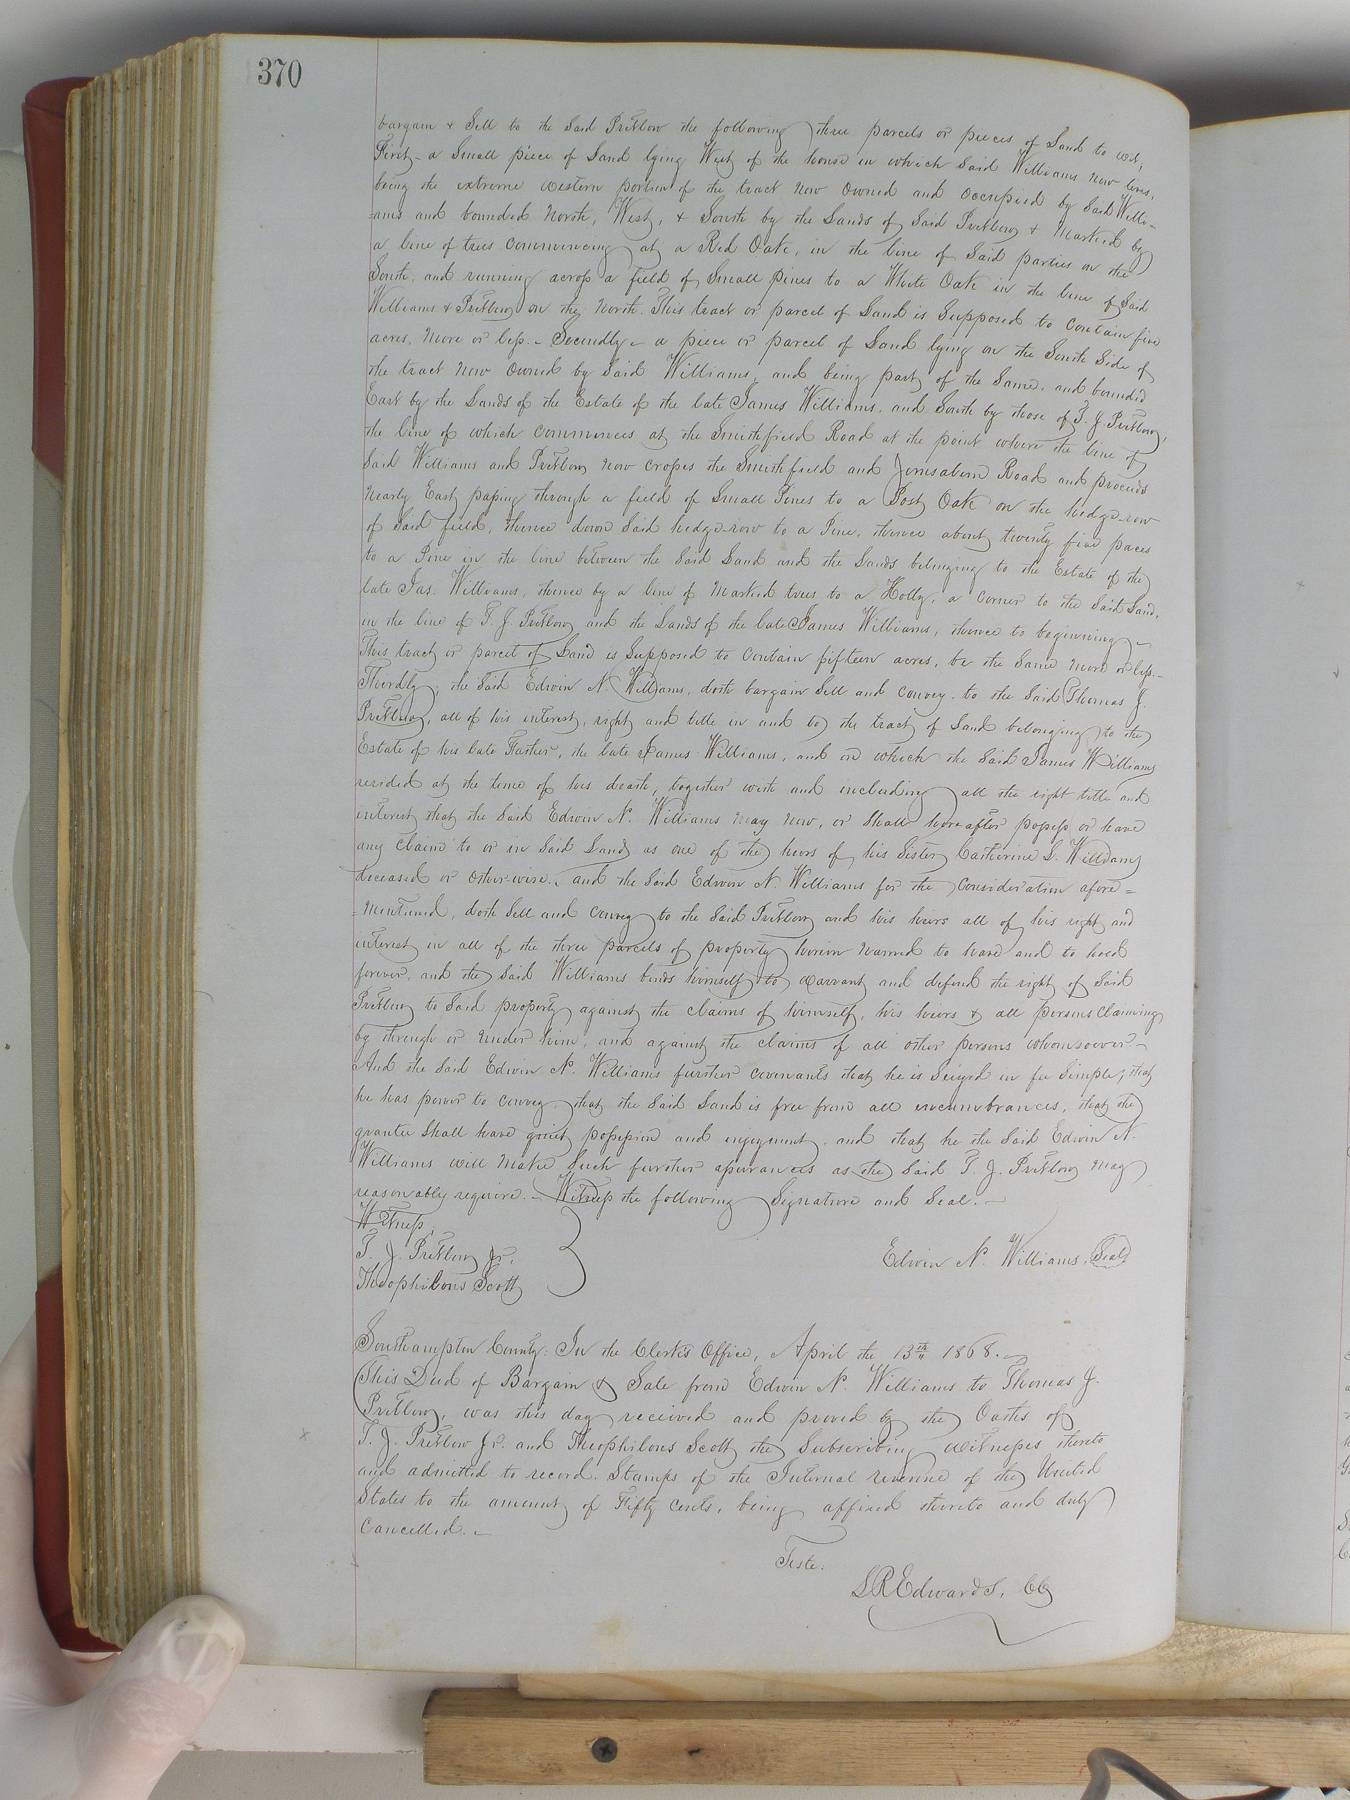 370
bargain & Sell to the Said Pretlow the following three parcels or pieces of Land to wit,
First - a Small piece of Land lying West of the house in which Said Williams now lives,
being the extreme western portion of the tract now owned and occupied by Said Willi-
-ams and bounded North, West, & South by the Lands of Said Pretlow & Marked by
a line of trees commencing at a Red Oak, in the line of Said parties on the
South and running across a field of Small pines to a White Oak in the line of Said
Williams & Pretlow on the North. This tract or parcel of Land is Supposed to Contain five
acres, more or less. - Secondly - a piece or parcel of Land lying on the South Side of
the tract now owned by Said Williams, and being part of the Same, and bounded
East by the Lands of the Estate of the late James Williams, and South by those of T. J. Pretlow,
the line of which commences at the Smithfield Road at the point where the line of
Said Williams and Pretlow now crosses the Smithfield and Jerusalem Road and proceeds
nearly East passing through a field of Small Pines to a Post Oak on the hedge-row
of Said field, thence down Said hedge-row to a Pine, thence about twenty five paces
to a Pine in the line between the Said Land and the Lands belonging to the Estate of the
late Jas. Williams, thence by a line of Marked trees to a Holly, a corner to the Said Land,
in the line of T. J. Pretlow and the Lands of the late James Williams, thence to beginning -
This tract or parcel of Land is Supposed to contain fifteen acres, be the Same more or less. -
Thirdly, the Said Edwin N. Williams, doth bargain Sell and convey to the Said Thomas J.
Pretlow, all of his interest, right and title in and to the tract of Land belonging to the
Estate of his late Father, the late James Williams, and on which the Said James Williams
resided at the time of his death, together with and including all the right title and
interest that the Said Edwin N. Williams may now, or Shall hereafter possess or have
any claim to or in Said Land as one of the heirs of his Sister Catherine S. Williams
deceased or other-wise. and the Said Edwin N. Williams for the Consideration afore=
=Mentioned, doth Sell and convey to the Said Pretlow and his heirs all of his right and
interest in all of the three parcels of property herein named to have and to hold
forever, and the Said Williams binds himself to warrant and defend the right of Said
Pretlow to Said property against the claims of himself, his heirs & all persons Claiming
by through or under him, and against the claims of all other persons whomsoever -
And the Said Edwin N. Williams further covenants that he is Seized in fee Simple, that
he has power to convey, that the Said Land is free from all incumbrances, that the
grantee Shall have quiet possession and enjoyment, and that he the Said Edwin N.
Williams will Make Such further assurances as the Said T. J. Pretlow may
reasonably require. - Witness the following Signature and Seal. -
Witness,
T. J. Pretlow Jr.
Edwin N. Williams. Seal
Theophilous Scott
Southampton County: In the Clerk's Office, April the 13th 1868. -
This Deed of Bargain & Sale from Edwin N. Williams to Thomas J.
Pretlow, was this day received and proved by the Oaths of
T. J. Pretlow Jr. and Theophilous Scott the Subscribing witnesses thereto
and admitted to record. Stamps of the Internal revenue of the United
States to the amount of Fifty cents, being affixed thereto and duly
Cancelled. -
Teste.
L R Edwards, CC